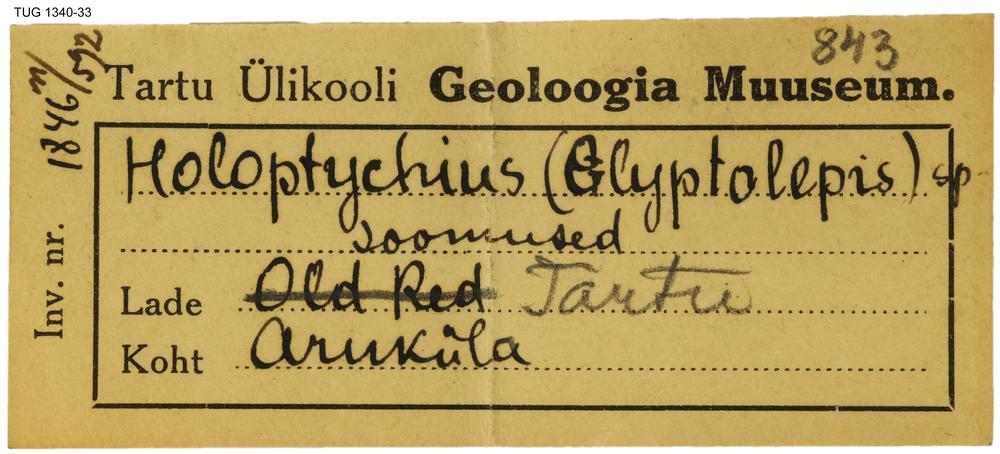 TUG 1340-33
843
Tartu Ülikooli Geoloogia Muuseum.
Inv. nr. 1846 m/592
Holoptychius (Glyptolepis) sp
soomused
Lade Old Red Tartu
Koht Aruküla